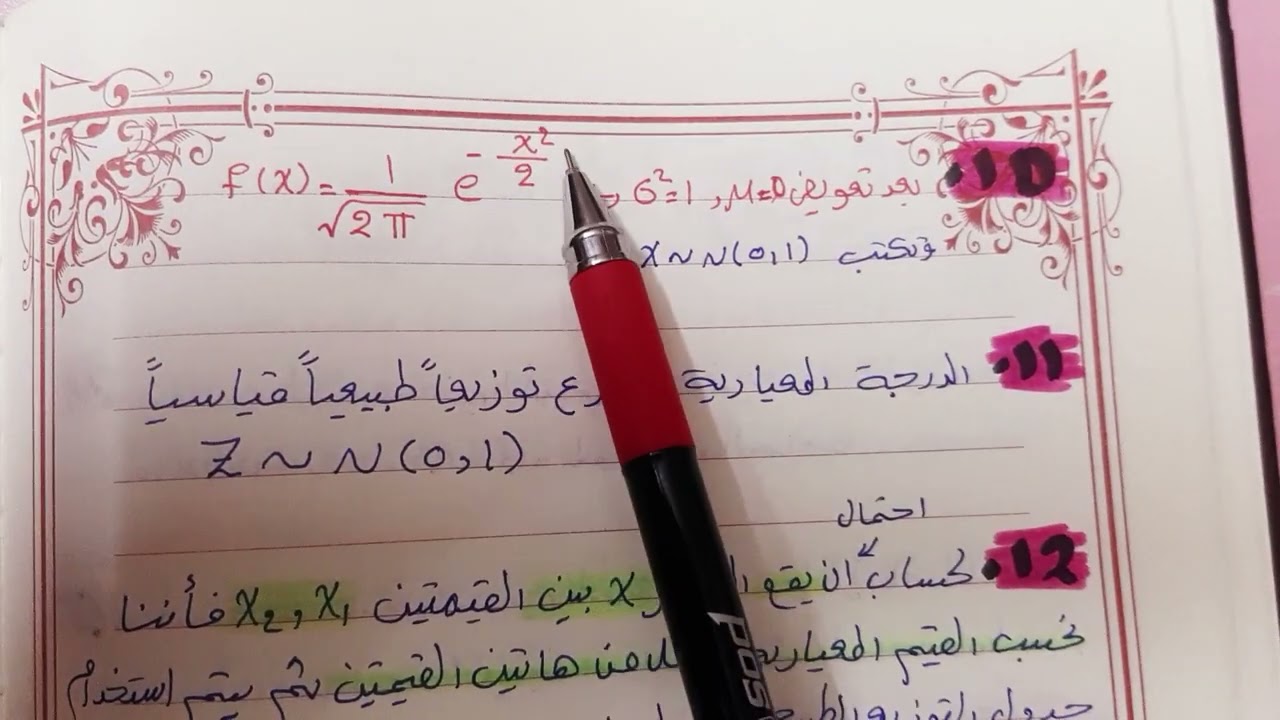 10. بعد تعويض μ=0 , σ²=1 , f(x) = 1/√2π e^-x²/2
وتكتب X ~ N(0,1)
11. الدرجة المعيارية توزيعاً طبيعياً قياسياً
Z ~ N(0,1)
احتمال
12. لحساب ان يقع X بين القيمتين X₁ و X₂ فأننا
نحسب القيم المعيارية هاتين القيمتين ثم يتم استخدام
جدول التوزيع